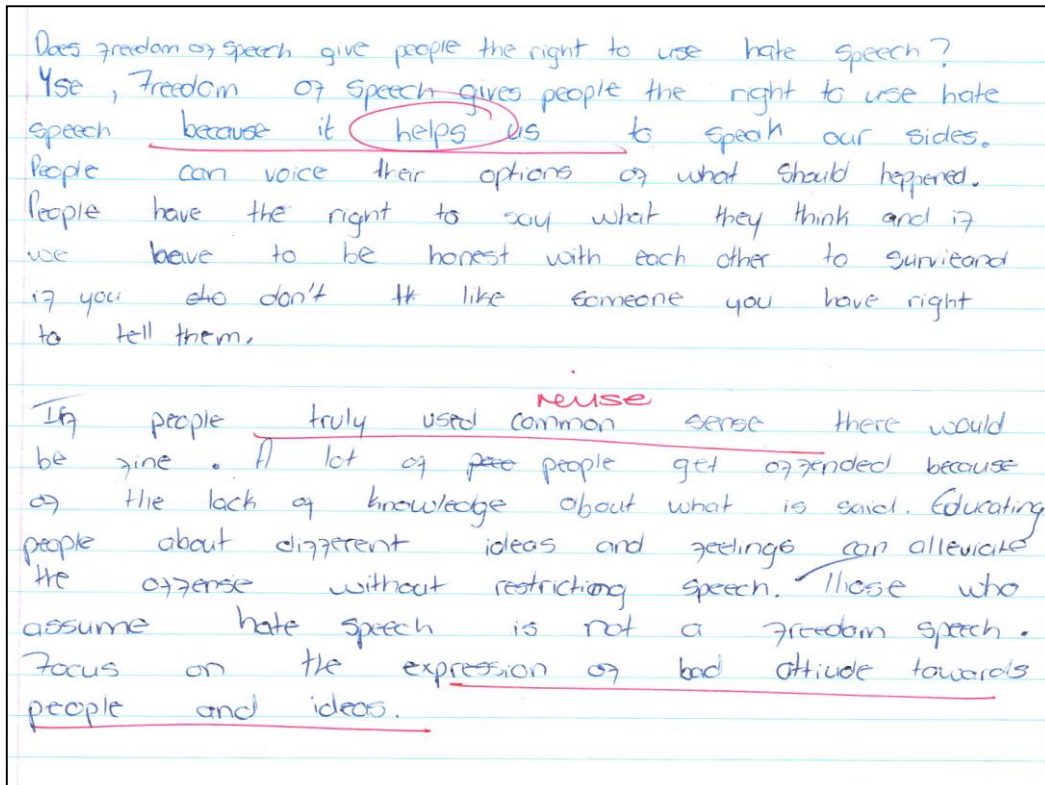 Does freedom of speech give people the right to use hate speech?
Yse, Freedom of speech gives people the right to use hate
speech because it helps us to speak our sides.
People can voice their options of what should heppened.
People have the right to say what they think and if
we beive to be honest with each other to survieand
if you don't like someone you have right
to tell them.
reuse
If people truly used common sense there would
be fine. A lot of people get offended because
of the lack of knowledge about what is said. Educating
people about different ideas and feelings can alleviate
the offense without restrictiong speech. Those who
assume hate speech is not a freedom speech.
Focus on the expression of bad attiude towards
people and ideas.